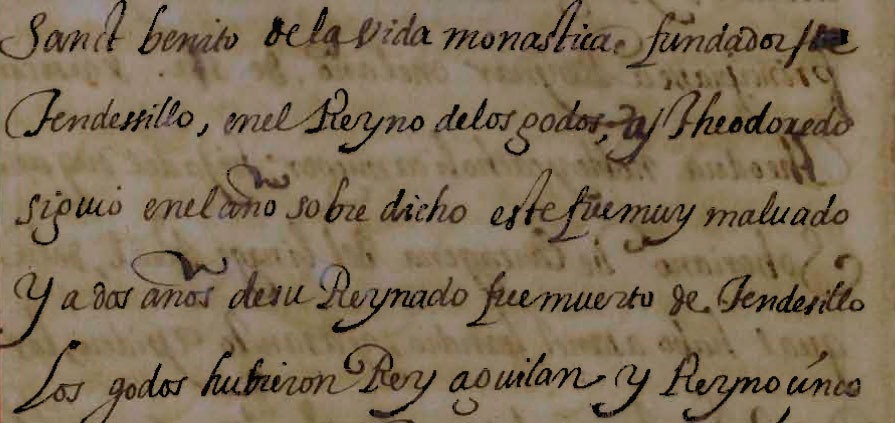 Sanct benito de la vida monastica. fundador
Tendessillo, en el Reyno de los godos, a Theodoredo
siguio en el año sobre dicho este fue muy maluado
Y a dos años de su Reynado fue muerto de Tendesillo
Los godos hubieron Rey aguilan y Reyno cinco